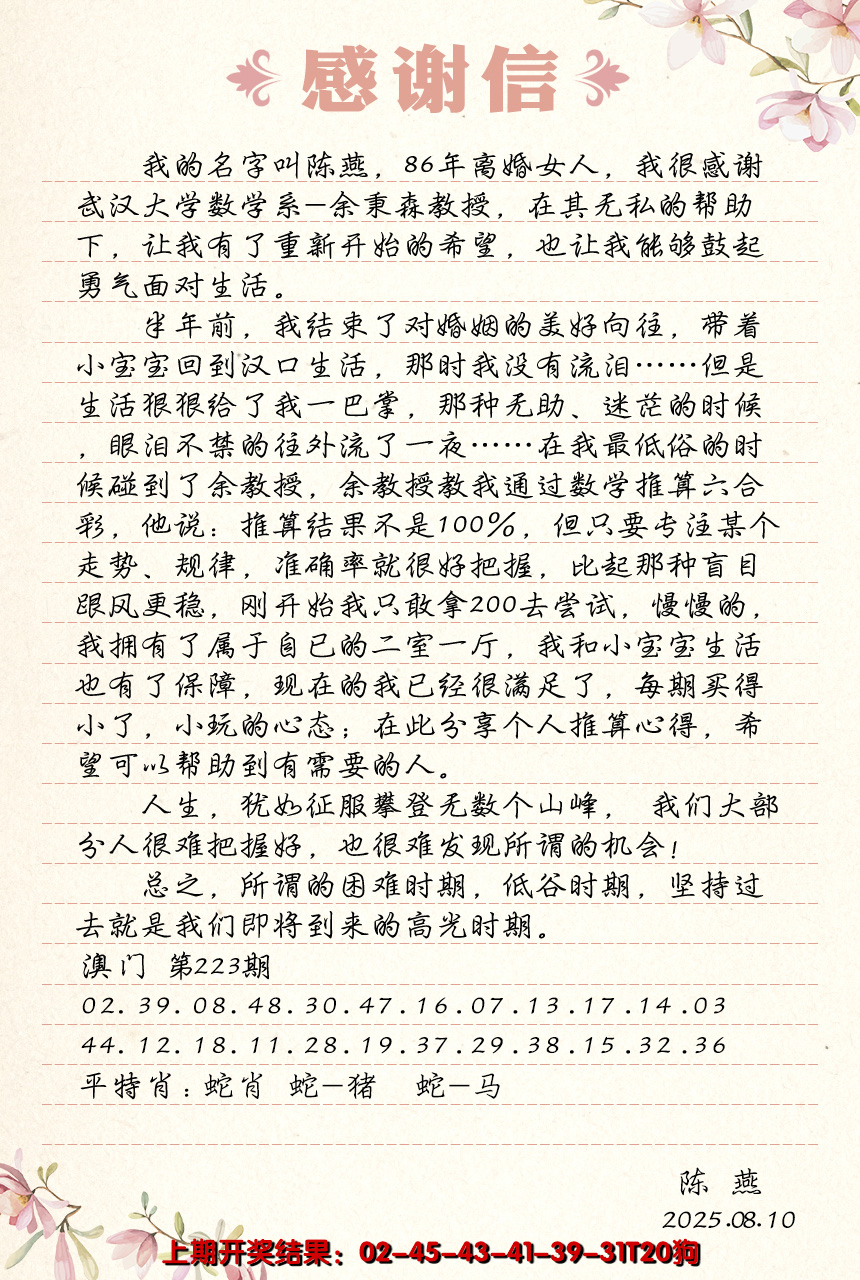 感谢信
我的名字叫陈燕，86年离婚女人，我很感谢
武汉大学数学系—余秉森教授，在其无私的帮助
下，让我有了重新开始的希望，也让我能够鼓起
勇气面对生活。
半年前，我结束了对婚姻的美好向往，带着
小宝宝回到汉口生活，那时我没有流泪……但是
生活狠狠给了我一巴掌，那种无助、迷茫的时候
，眼泪不禁的往外流了一夜……在我最低俗的时
候碰到了余教授，余教授教我通过数学推算六合
彩，他说：推算结果不是100%，但只要专注某个
走势、规律，准确率就很好把握，比起那种盲目
跟风更稳，刚开始我只敢拿200去尝试，慢慢的，
我拥有了属于自已的二室一厅，我和小宝宝生活
也有了保障，现在的我已经很满足了，每期买得
小了，小玩的心态；在此分享个人推算心得，希
望可以帮助到有需要的人。
人生，犹如征服攀登无数个山峰， 我们大部
分人很难把握好，也很难发现所谓的机会！
总之，所谓的困难时期，低谷时期，坚持过
去就是我们即将到来的高光时期。
澳门 第223期
02.39.08.48.30.47.16.07.13.17.14.03
44.12.18.11.28.19.37.29.38.15.32.36
平特肖：蛇肖 蛇—猪 蛇—马
陈 燕
2025.08.10
上期开奖结果：02-45-43-41-39-31T20狗